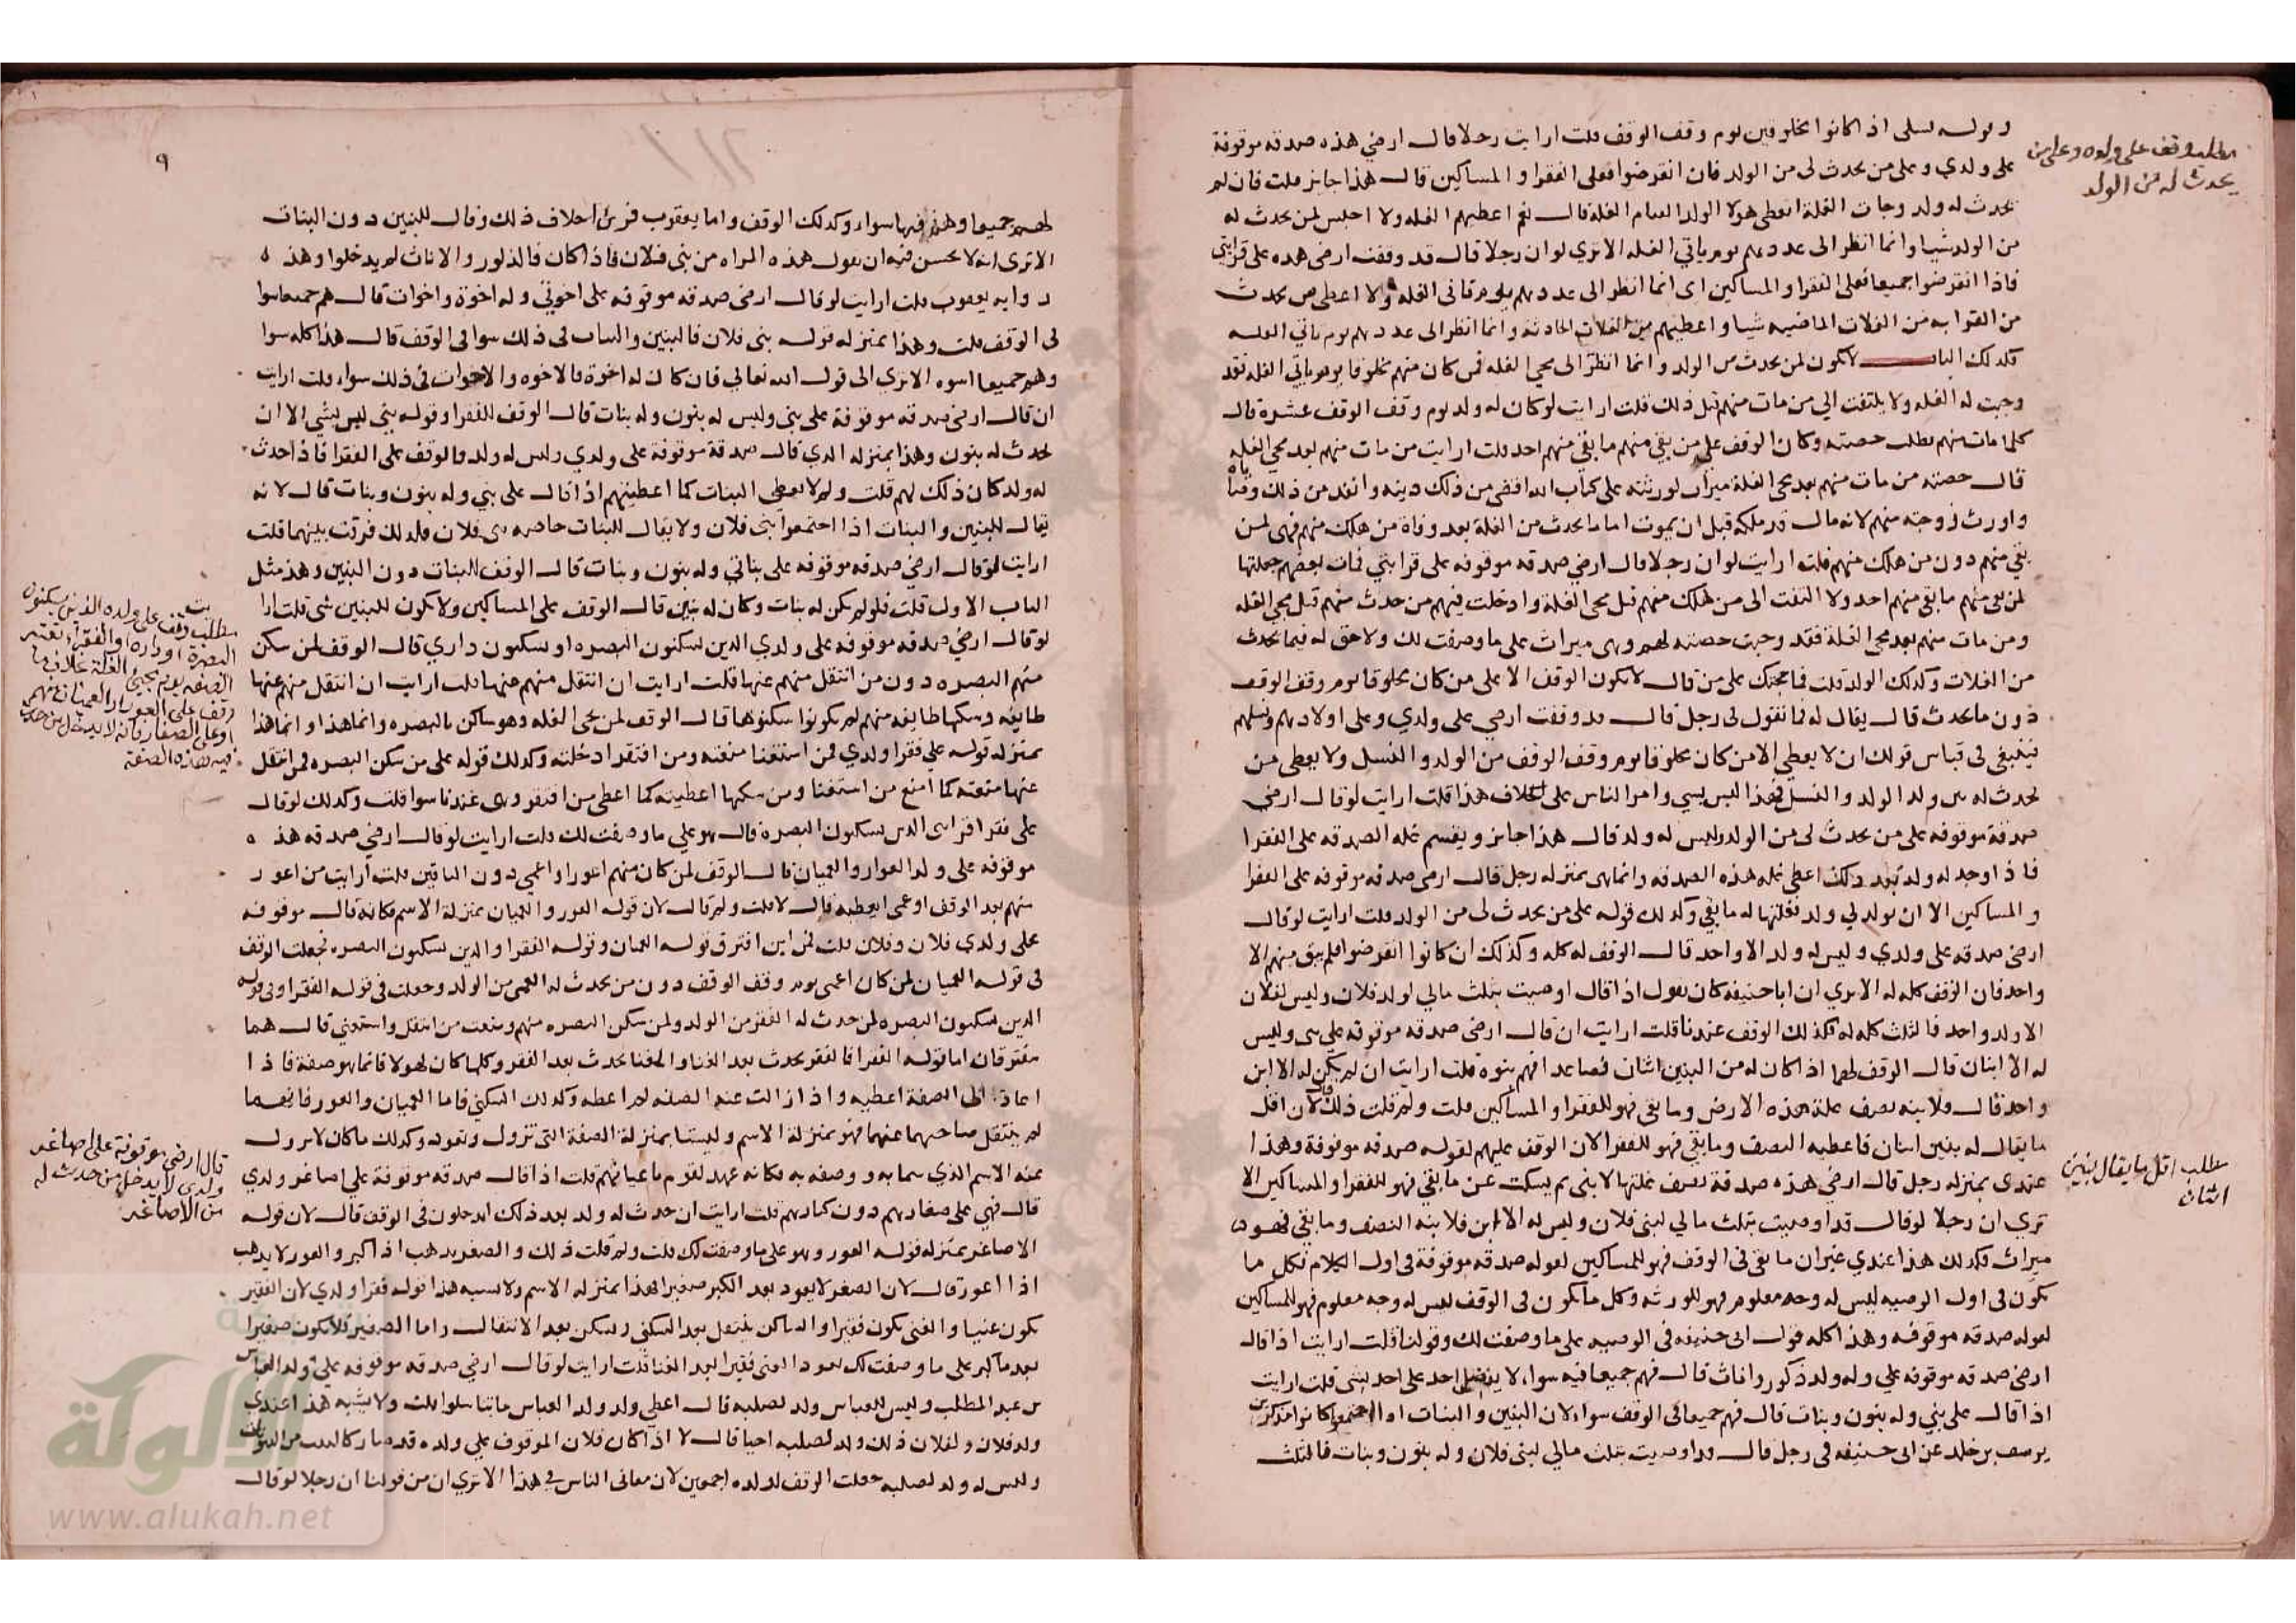 وقوله نسلي اذا كانوا مخلوقين يوم وقف الوقف قلت ارايت رجلا قال ارضي هذه صدقه موقوفة
على ولدي وعلى من يحدث لي من الولد فان انقرضوا فعلى الفقرا والمساكين قال هذا جايز قلت فان لم
يحدث له ولد وجات الغلة ايعطى هولا الولد العام الغلة قال نعم اعطيهم الغله ولا احبس لمن يحدث له
من الولد شيا وانما انظر الى عددهم يوم ياتي الغله الا تري لو ان رجلا قال قد وقفت ارضي هده على قرابتي
فاذا انقرضوا جميعا فعلى الفقرا والمساكين اى انما انظر الى عددهم يوم تاتي الغله ولا اعطى من يحدث
من القرابه من الغلات الماضيه شيا واعطيهم من الغلات الحادثه وانما انظر الى عددهم يوم ياتي الغله
فكدلك الباب لا يكون لمن يحدث من الولد وانما انظر الى مجي الغله فمن كان منهم مخلوقا يوم ياتي الغله فقد
وجبت له الغله ولا يلتفت الي من مات منهم قبل ذلك قلت ارايت لو كان له ولد يوم وقف الوقف عشره قال
كلما مات منهم بطلت حصته وكان الوقف على من بقي منهم ما بقي منهم احد قلت ارايت من مات منهم بعد مجي الغله
قال حصته من مات منهم بعد مجي الغلة ميراث لورثته على كتاب الله اقضي من ذلك دينه وانفد من ذلك وصاياه
واورث زوجته منهم لانه مال قد ملكه قبل ان يموت اما ما يحدث من الغلة بعد وفاة من هلك منهم فهى لمن
بقي منهم دون من هلك منهم قلت ارايت لو ان رجلا قال ارضي صدقه موقوفه على قرابتي فمات بعضهم جعلتها
لمن بقي منهم ما بقي منهم احد ولا التفت الى من هلك منهم قبل مجي الغلة وادخلت فيهم من حدث منهم قبل مجي الغله
ومن مات منهم بعد مجي الغلة فقد وجبت حصته لهم وهى ميراث على ما وصفت لك ولا حق له فيما يحدث
من الغلات وكدلك الولد قلت فما حجتك على من قال لا يكون الوقف الا على من كان مخلوقا يوم وقف الوقف
دون ما يحدث قال يقال له فما تقول في رجل قال قد وقفت ارضي على ولدي وعلى اولادهم ونسلهم
فينبغي في قياس قولك ان لا يعطي الا من كان مخلوقا يوم وقف الوقف من الولد والنسل ولا يعطى من
يحدث له من ولد الولد والنسل فهذا ليس بشي وامر الناس على خلاف هذا قلت ارايت لو قال ارضي
صدقة موقوفه على من يحدث لى من الولد وليس له ولد قال هذا جايز ويقسم غله الصدقه على الفقرا
فاذا وجد له ولد بعد ذلك اعطي غله هذه الصدقه وانما هى بمنزله رجل قال ارضى صدقه موقوفه على الفقرا
والمساكين الا ان يولد لي ولد فغلتها له ما بقي وكدلك قوله على من يحدث لى من الولد قلت ارايت لو قال
ارضى صدقه على ولدي وليس له ولد الا واحد قال الوقف له كله وكذلك ان كانوا انقرضوا فلم يبق منهم الا
واحد فان الوقف كله له الا تري ان ابا حنيفه كان يقول اذا قال اوصيت بثلث مالي لولد فلان وليس لفلان
الا ولد واحد فالثلث كله له فكذلك الوقف عندنا قلت ارايت ان قال ارضى صدقه موقوفه على بنى وليس
له الا ابنان قال الوقف لهما اذا كان له من البنين اثنان فصاعدا فهم بنوه قلت ارايت ان لم يكن له الا ابن
واحد قال فلابنه نصف غلة هذه الارض وما بقي فهو للفقرا والمساكين قلت ولم قلت ذلك قال لان اقل
ما يقال له بنين اثنان فاعطيه النصف وما بقي فهو للفقرا لان الوقف عليهم لقوله صدقه موقوفة وهذا
عندى بمنزله رجل قال ارضي هذه صدقة نصف غلتها لابنى ثم يسكت عن ما بقي فهو للفقرا والمساكين الا
تري ان رجلا لو قال قد اوصيت بثلث مالي لبنى فلان وليس له الا ابن فلابنه النصف وما بقي فهو
ميراث فكدلك هذا عندي غير ان ما بقى في الوقف فهو للمساكين لقوله صدقه موقوفة في اول الكلام فكل ما
يكون في اول الوصيه ليس له وجه معلوم فهو للورثه وكل ما يكون فى الوقف ليس له وجه معلوم فهو للمساكين
لقوله صدقه موقوفه وهذا كله قول ابى حنيفه في الوصيه على ما وصفت لك وقولنا قلت ارايت اذا قال
ارضى صدقه موقوفه علي وله ولد ذكور واناث قال فهم جميعا فيه سواء لا يفضل احد على احد بشى قلت ارايت
اذا قال على بني وله بنون وبنات قال فهم جميعا في الوقف سواء لان البنين والبنات اذا اجتمعوا كانوا مذكرين
يوسف بن خلد عن ابى حنيفه في رجل قال قد اوصيت بثلث مالي لبنى فلان وله بنون وبنات فالثلث
مطلب وقف على ولده وعلى من
يحدث له من الولد
مطلب اقل ما يقال بنين
اثنان
٩
لهم جميعا وهم فيها سواء وكدلك الوقف واما يعقوب فرئ خلاف ذلك وقال للبنين دون البنات
الا ترى انه لا يحسن فيه ان يقول هذه المراه من بني فلان فاذا كان فالذكور والاناث لم يدخلوا وهذه
روايه يعقوب قلت ارايت لو قال ارضى صدقه موقوفه على اخوتي وله اخوة واخوات قال هم جميعا سوا
في الوقف قلت وهذا بمنزله قوله بنى فلان فالبنين والبنات في ذلك سوا في الوقف قال هذا كله سوا
وهم جميعا اسوه الا تري الى قول الله تعالي فان كان له اخوة فالاخوه والاخوات في ذلك سواء قلت ارايت
ان قال ارضى صدقه موقوفة على بني وليس له بنون وله بنات قال الوقف للفقرا وقوله بني ليس بشي الا ان
يحدث له بنون وهذا بمنزله الدي قال صدقة موقوفة على ولدي وليس له ولد فالوقف على الفقرا فاذا حدث
له ولد كان ذلك لهم قلت ولم لا يعطى البنات كما اعطيتهم اذا قال على بني وله بنون وبنات قال لانه
يقال للبنين والبنات اذا اجتمعوا بني فلان ولا يقال للبنات خاصه بنى فلان فلدلك فرقت بينهما قلت
ارايت لو قال ارضي صدقه موقوفه على بناتي وله بنون وبنات قال الوقف للبنات دون البنين وهذ مثل
الباب الاول قلت فلو لم يكن له بنات وكان له بنين قال الوقف على المساكين ولا يكون للبنين شى قلت ارا
لو قال ارضي صدقه موقوفه على ولدي الدين يسكنون البصره او يسكنون داري قال الوقف لمن سكن
منهم البصره دون من انتقل منهم عنها قلت ارايت ان انتقل منهم عنها قلت ارايت ان انتقل منهم عنها
طايفه وسكنها طايفه منهم لم يكونوا سكنوها قال الوقف لمن يجى الغله وهو ساكن بالبصره وانما هذا وانما هذا
بمنزله قوله علي فقرا ولدي فمن استغنا منعته ومن افتقر ادخلته وكدلك قوله على من سكن البصره فمن انتقل
عنها منعته كما امنع من استغنا ومن سكنها اعطيته كما اعطى من افتقر وهى عندنا سوا قلت وكدلك لو قال
على فقرا قرابتى الدين يسكنون البصرة قال هو علي ما وصفت لك قلت ارايت لو قال ارضي صدقه هذه
موقوفه على ولدي العوار والعميان قال الوقف لمن كان منهم اعور او اعمي دون الباقين قلت ارايت من اعور
منهم بعد الوقف او عمي ايعطيه قال لا قلت ولم قال لان قوله العور والعميان بمنزلة الاسم فكانه قال موقوفه
على ولدي فلان وفلان قلت فمن اين افترق قوله العميان وقوله الفقرا والدين يسكنون البصره فجعلت الوقف
فى قوله العميان لمن كان اعمى يوم وقف الوقف دون من يحدث له العمى من الولد وجعلت في قوله الفقرا وفي قوله
الدين يسكنون البصره لمن حدث له الفقر من الولد ولمن سكن البصره منهم ومنعت من انتقل واستغني قال هما
مفترقان اما قوله الفقرا فالفقر يحدث بعد الغنا والغنا يحدث بعد الفقر وكلما كان لهولا فانما هو صفة فاذا
اعاد الى الصفة اعطيه واذا زالت عنه الصفه لم اعطه وكدلك السكني فاما العميان والعور فانهما
لم ينتقل صاحبهما عنهما فهو بمنزلة الاسم وليستا بمنزلة الصفة التي تزول وتعود وكدلك ما كان لا يزول
عنه الاسم الذي سما به ووصفه به فكانه عهد لقوم باعيانهم قلت اذا قال صدقه موقوفة علي اصاغر ولدي
قال فهي على صغارهم دون كبارهم قلت ارايت ان حدث له ولد بعد ذلك ايدخلون في الوقف قال لا لان قوله
الاصاغر بمنزله قوله العور وهو على ما وصفت لك قلت ولم قلت ذلك والصغر يدهب اذا كبر والعور لا يدهب
اذا اعور قال لان الصغر لا يعود بعد الكبر صغيرا فهذا بمنزله الاسم ولا يشبه هذا قوله فقرا ولدي لان الفقير
يكون غنيا والغنى يكون فقيرا والساكن ينتقل بعد السكني ويسكن بعد الانتقال واما الصغير فلا يكون صغيرا
بعد ما كبر على ما وصفت لك يعود الغنى فقيرا بعد الغنا قلت ارايت لو قال ارضي صدقه موقوفه على ولد العباس
بن عبد المطلب وليس للعباس ولد لصلبه قال اعطي ولد ولد العباس ما تناسلوا قلت ولا يشبه هذا عندي
ولد فلان ولفلان ذلك ولد لصلبه احيا قال لا اذا كان فلان الموقوف علي ولده قد صار كالبيت من البيوتات
وليس له ولد لصلبه جعلت الوقف لولده اجمعين لان معاني الناس في هذا الا تري ان من قولنا ان رجلا لو قال
مطلب وقف على ولده الذين يسكنون
البصرة او داره او الفقراء تعتبر
الصفه يوم يجئ الغلة بخلاف ما
وقف على العور او العميان منهم
او على الصغار فانه لا يدخل من حدث
فيه هذه الصفة
قال ارضى موقوفة على اصاغر
ولدي لا يدخل من حدث له
من الاصاغر
الألوكة
www.alukah.net